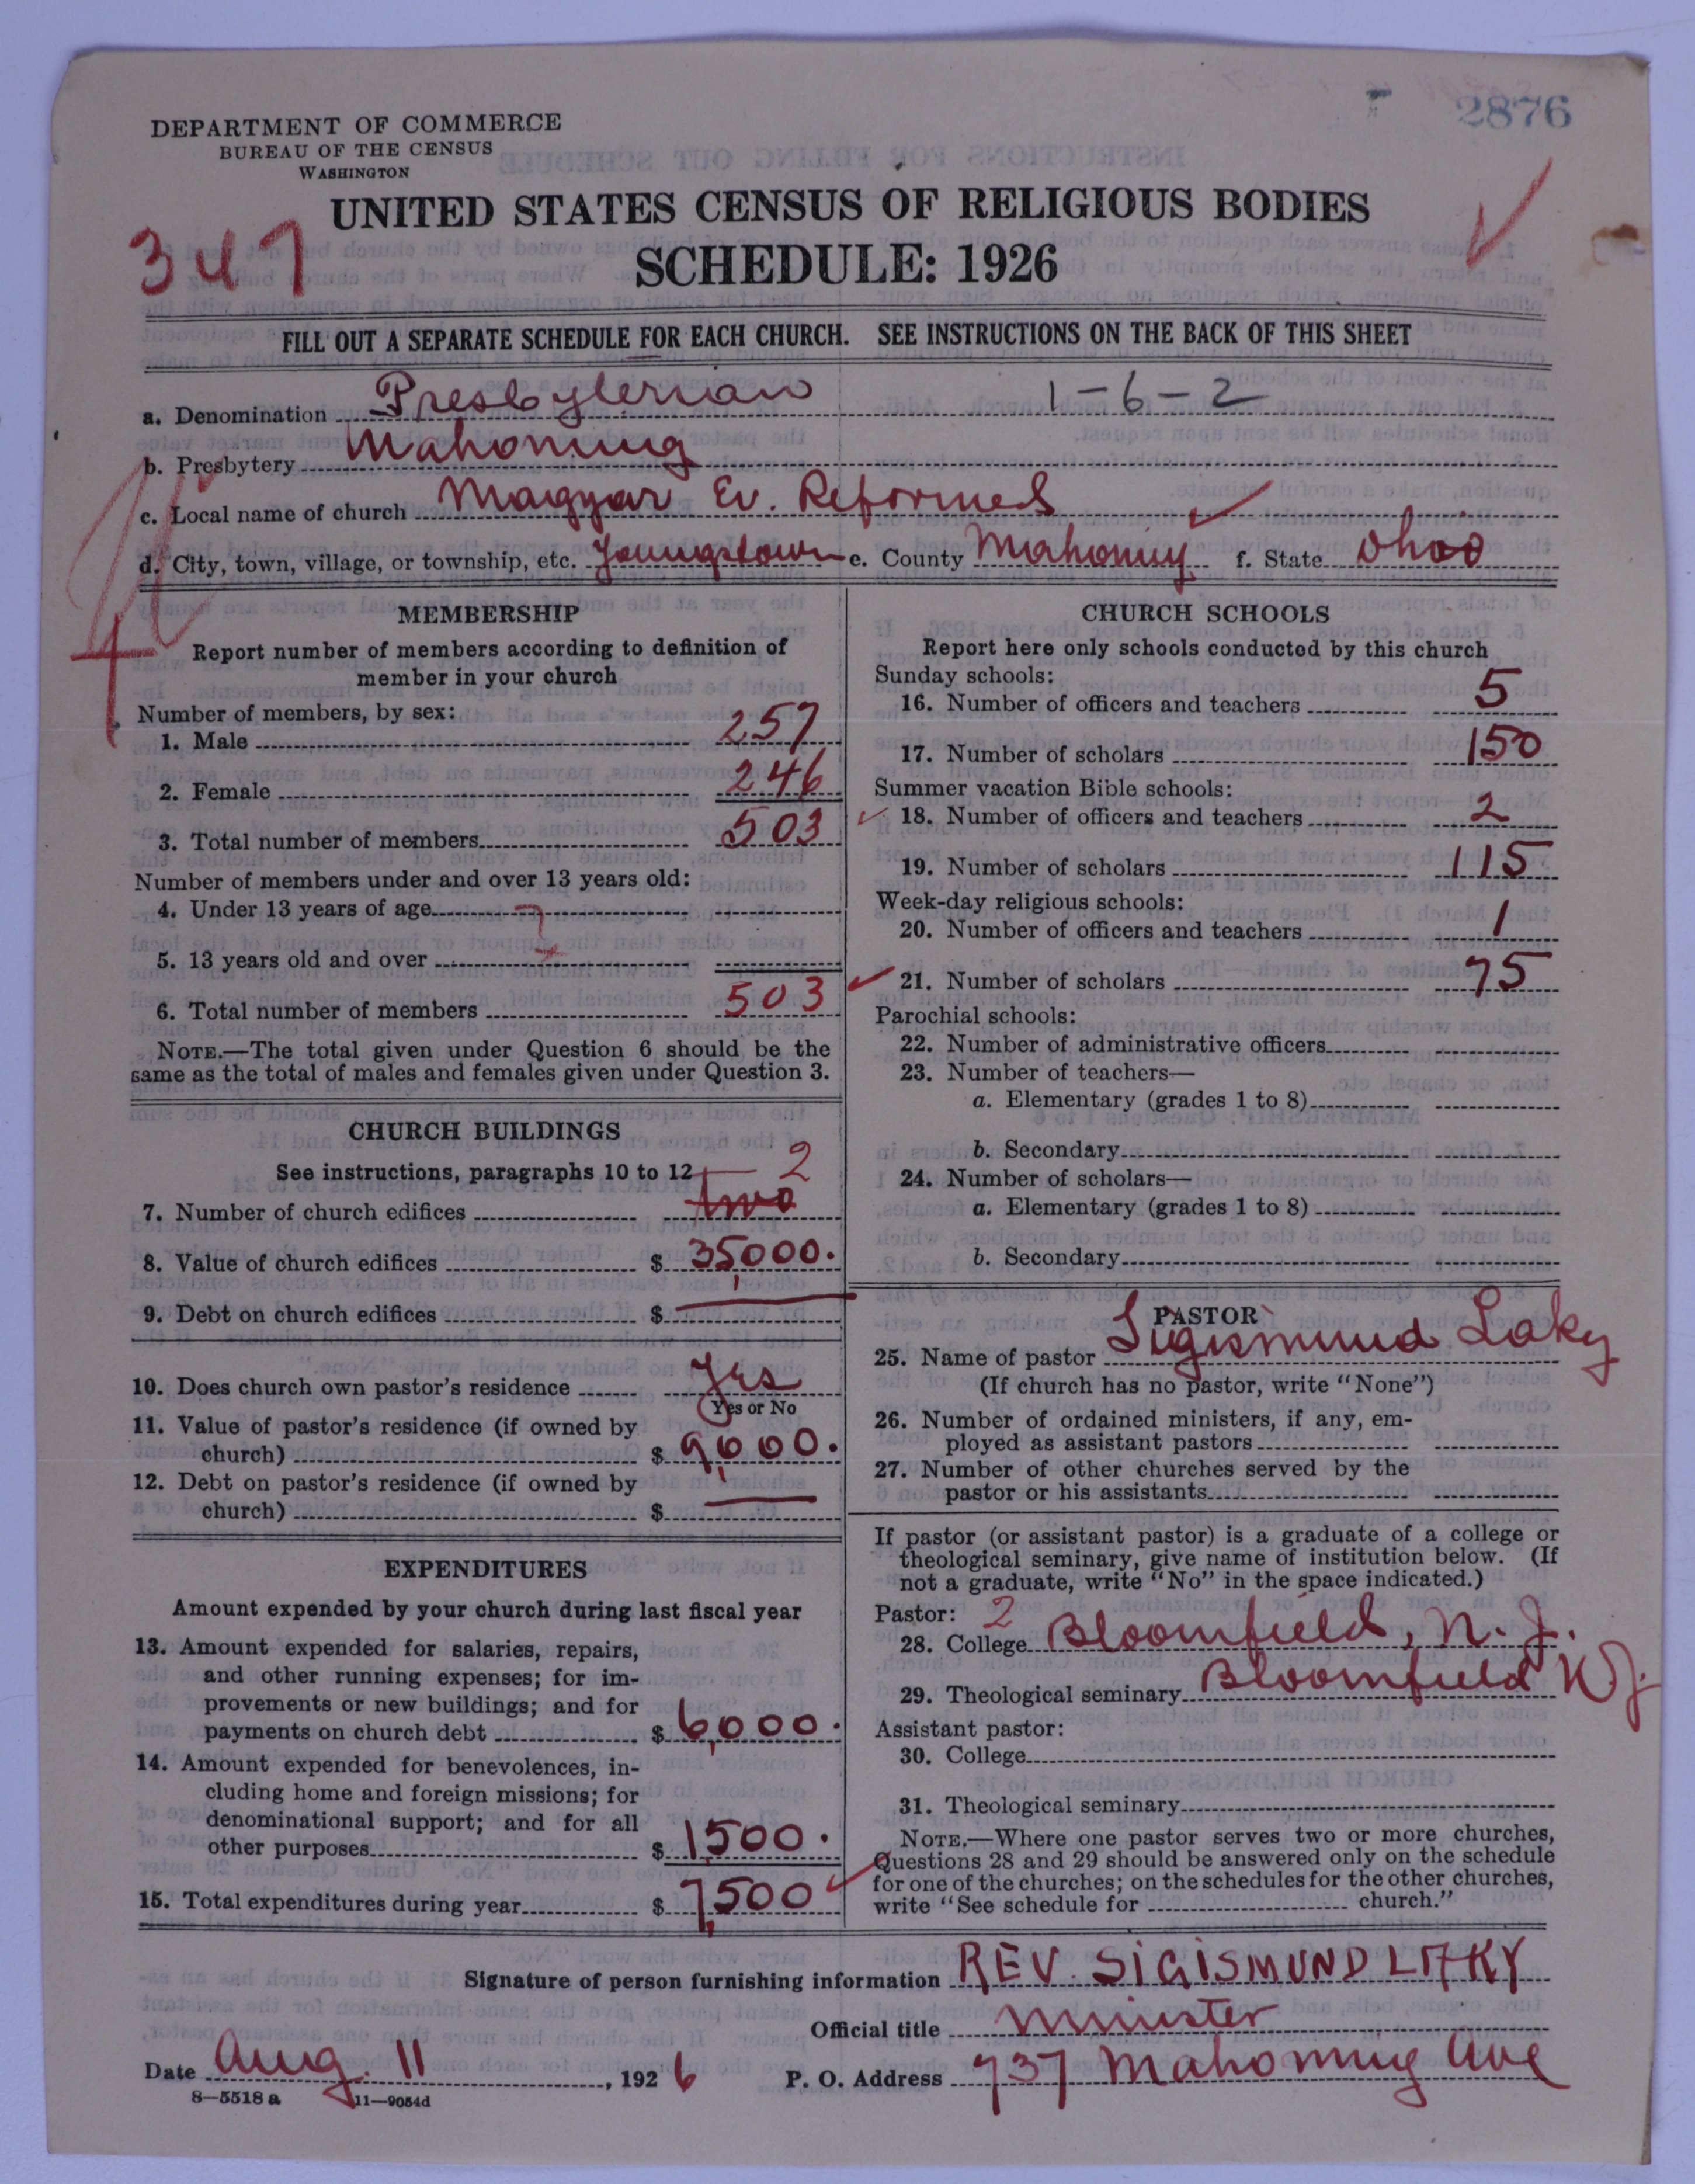 2876
DEPARTMENT OF COMMERCE
BUREAU OF THE CENSUS
WASHINGTON
UNITED STATES CENSUS OF RELIGIOUS BODIES
347
SCHEDULE: 1926
FILL OUT A SEPARATE SCHEDULE FOR EACH CHURCH. SEE INSTRUCTIONS ON THE BACK OF THIS SHEET
a. Denomination Presbyterian 1-6-2
b. Presbytery Mahoning
c. Local name of church Magyar Ev. Reformed
d. City, town, village, or township, etc. Youngstown e. County Mahoning f. State Ohio
MEMBERSHIP
Report number of members according to definition of
member in your church
Number of members, by sex:
1. Male 257
2. Female 246
3. Total number of members 503
Number of members under and over 13 years old:
4. Under 13 years of age
5. 13 years old and over
6. Total number of members 503
NOTE.—The total given under Question 6 should be the
same as the total of males and females given under Question 3.
CHURCH BUILDINGS
See instructions, paragraphs 10 to 12 2
7. Number of church edifices two
8. Value of church edifices $ 35,000.
9. Debt on church edifices $ —
10. Does church own pastor's residence Yes
Yes or No
11. Value of pastor's residence (if owned by
church) $ 9,000.
12. Debt on pastor's residence (if owned by
church) $ —
EXPENDITURES
Amount expended by your church during last fiscal year
13. Amount expended for salaries, repairs,
and other running expenses; for im-
provements or new buildings; and for
payments on church debt $ 6,000.
14. Amount expended for benevolences, in-
cluding home and foreign missions; for
denominational support; and for all
other purposes $ 1,500.
15. Total expenditures during year $ 7,500
CHURCH SCHOOLS
Report here only schools conducted by this church
Sunday schools:
16. Number of officers and teachers 5
17. Number of scholars 150
Summer vacation Bible schools:
18. Number of officers and teachers 2
19. Number of scholars 115
Week-day religious schools:
20. Number of officers and teachers 1
21. Number of scholars 75
Parochial schools:
22. Number of administrative officers
23. Number of teachers—
a. Elementary (grades 1 to 8)
b. Secondary
24. Number of scholars—
a. Elementary (grades 1 to 8)
b. Secondary
PASTOR
25. Name of pastor Sigismund Laky
(If church has no pastor, write "None")
26. Number of ordained ministers, if any, em-
ployed as assistant pastors
27. Number of other churches served by the
pastor or his assistants
If pastor (or assistant pastor) is a graduate of a college or
theological seminary, give name of institution below. (If
not a graduate, write "No" in the space indicated.)
Pastor: 2
28. College Bloomfield, N. J.
29. Theological seminary Bloomfield NJ.
Assistant pastor:
30. College
31. Theological seminary
NOTE.—Where one pastor serves two or more churches,
Questions 28 and 29 should be answered only on the schedule
for one of the churches; on the schedules for the other churches,
write "See schedule for church."
Signature of person furnishing information REV. SIGISMUND LAKY
Official title Minister
Date Aug. 11, 1926 P. O. Address 737 Mahoning Ave
8—5518 a 11—9054d